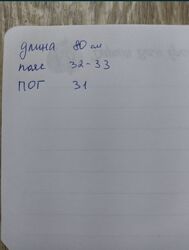 длина 80 см
пояс 32-33
ПОГ 31